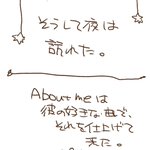 そうして夜は
訪れた。
About meは
彼の好きな曲で、
それを仕上げて
来た。